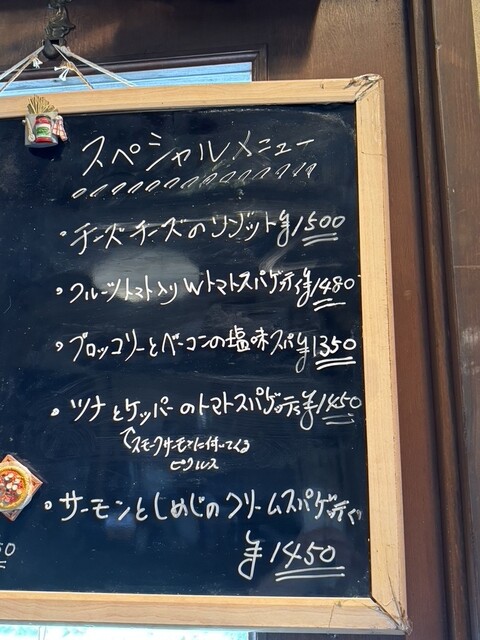 スペシャルメニュー
・チーズチーズのリゾット ¥1500
・フルーツトマト入りWトマトスパゲティ ¥1480
・ブロッコリーとベーコンの塩味スパ ¥1350
・ツナとケッパーのトマトスパゲティ ¥1450
スモークサーモンに付いてくる
ピクルス
・サーモンとしめじのクリームスパゲティ
¥1450
50